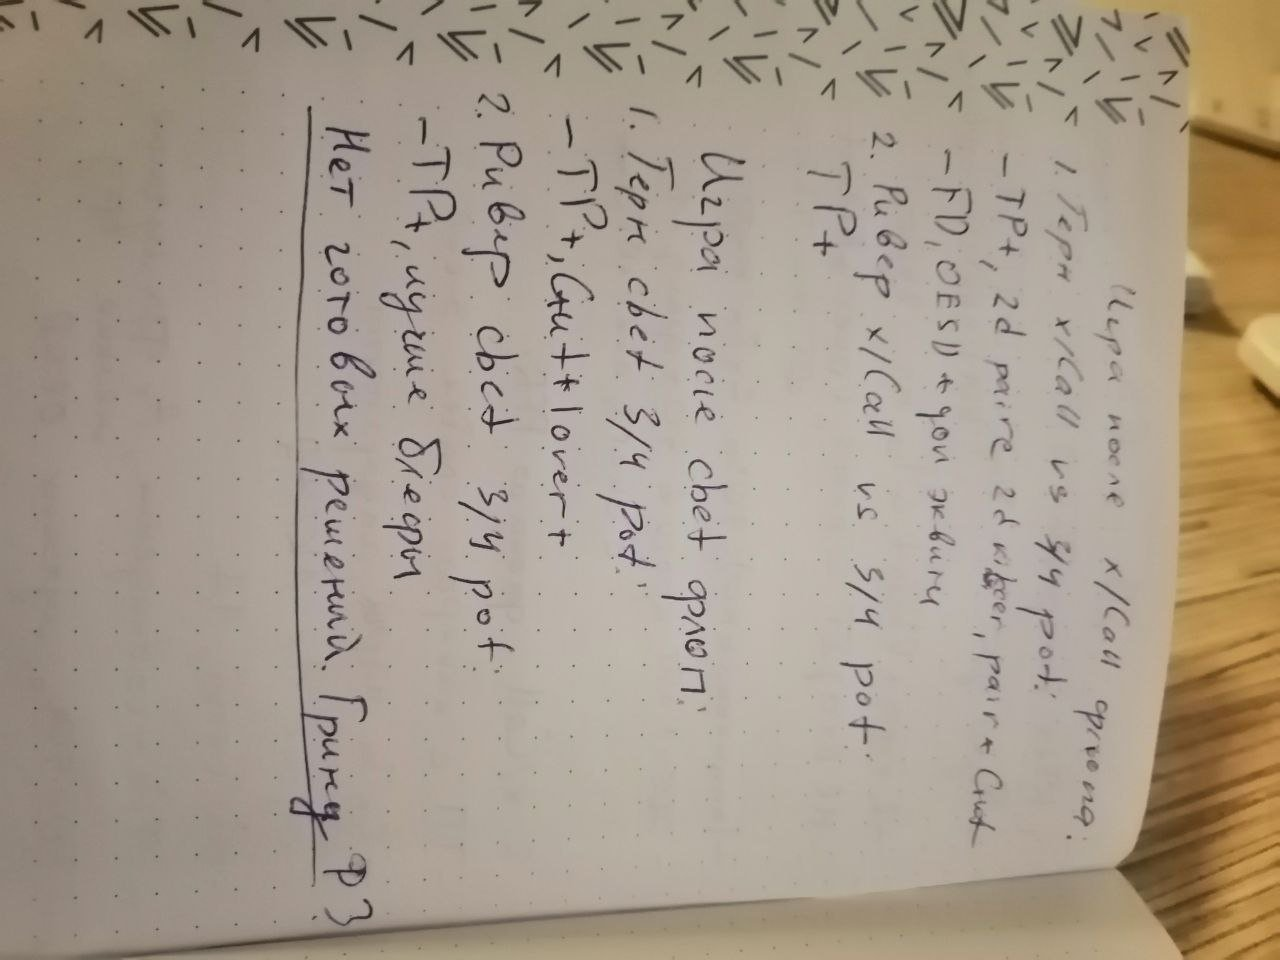 Игра после x/Call флопа:
1. Терн x/Call vs 3/4 pot:
- TP+, 2d paire 2d kicker, pair + Gut
- FD, OESD + доп эквити
2. Ривер x/Call vs 3/4 pot:
TP+
Игра после cbet флоп:
1. Терн cbet 3/4 pot:
- TP+, Gut + 1over+
2. Ривер cbet 3/4 pot:
- TP+, лучшие блефы
Нет готовых решений. Гринд ФЗ